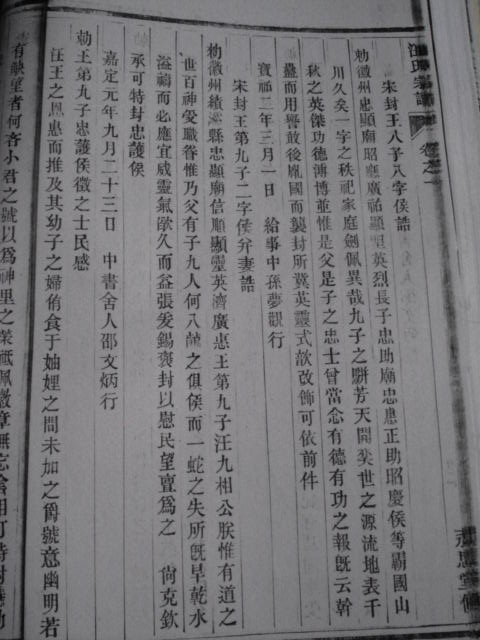 汪氏宗譜 卷之一
宋封王八子八字侯誥
勅徽州忠顯廟昭應廣祐顯聖英烈長子忠助廟忠惠正助昭慶侯等霸國山
川久矣一字之秩祀家庭劍佩異哉九子之駢芳天開奕世之源流地表千
秋之英傑功德溥博並惟是父是子之忠士曾當念有德有功之報旣云幹
蠱而用譽敢後胤國而襲封所冀英靈式歆改飾可依前件
寶祐二年三月一日 給事中孫夢觀行
宋封王第九子二字侯弁妻誥
勅徽州績溪縣忠顯廟信順顯靈英濟廣惠王第九子汪九相公朕惟有道之
世百神受職眷惟乃父有子九人何八龍之俱侯而一蛇之失所旣旱乾水
溢禱而必應宜威靈氣歆久而益張爰錫褒封以慰民望亶爲之 尙克欽
承可特封忠護侯
嘉定元年九月二十三日 中書舍人邵文炳行
勅王第九子忠護侯徽之士民感
汪王之恩惠而推及其幼子之婦侑食于妯娌之間未加之爵號意幽明若
有缺望者何吝小君之號以爲神里之榮祗佩徽章無忘